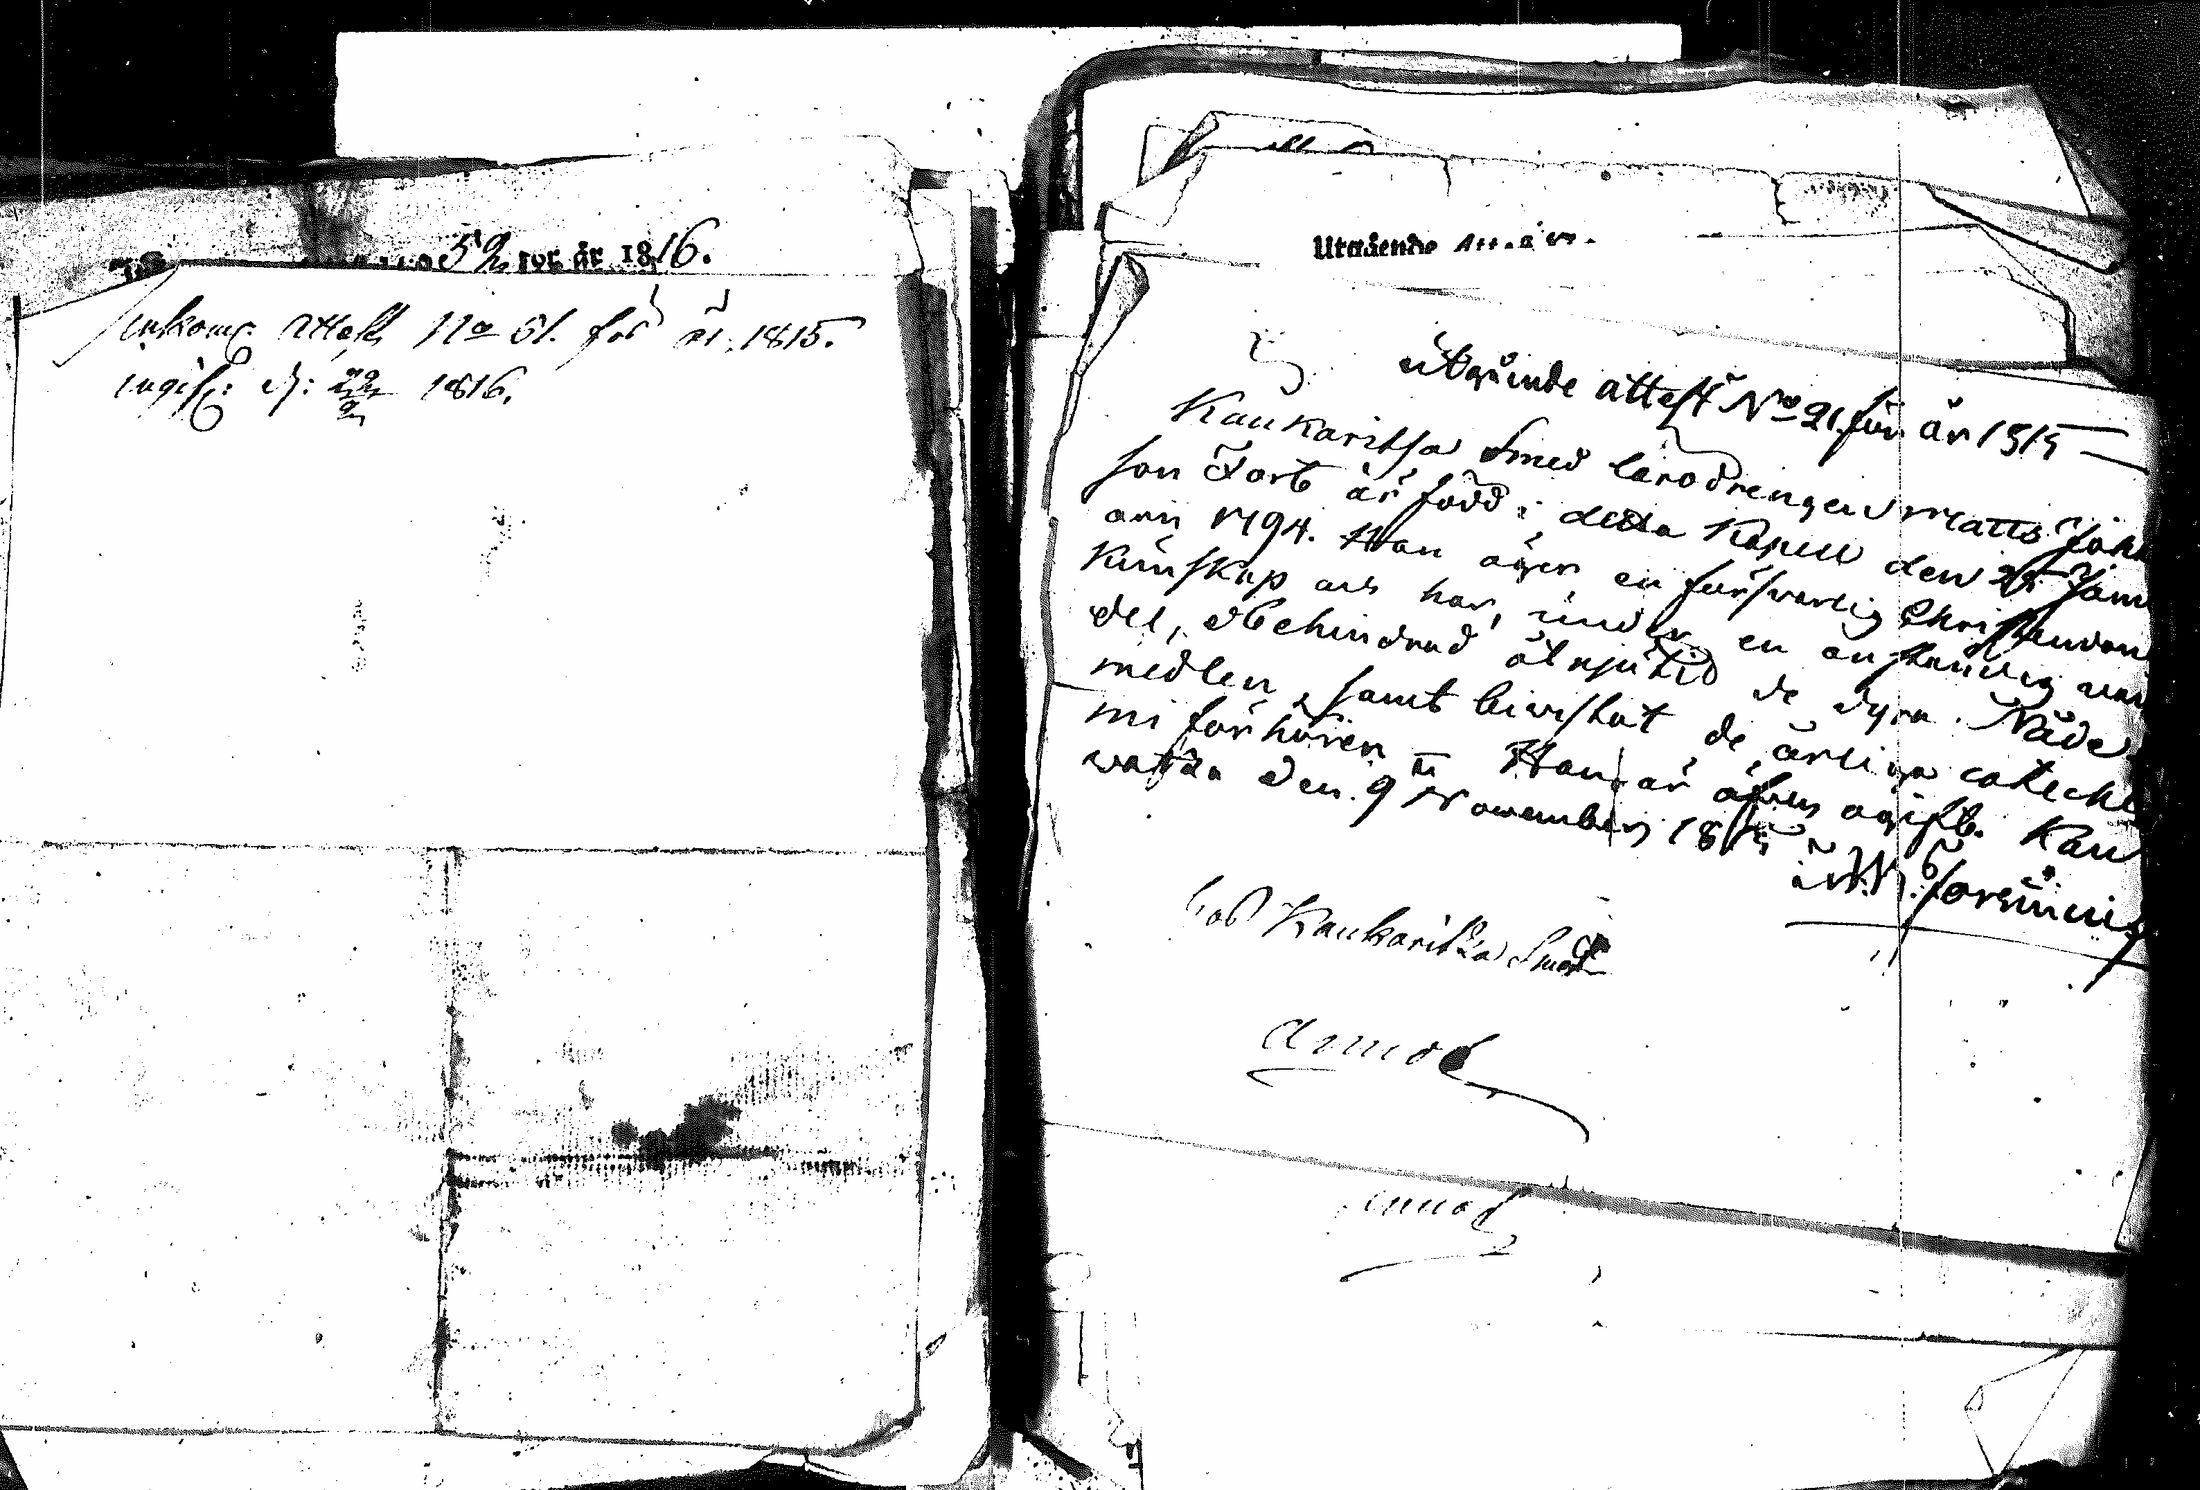 52 för år 1816.
inkom: Attest No 51. för år 1815.
ingif: d: 1816.
Utgående
utgående attest No 21. för år 1815
Kaukaritsa Smed lärodrengen Matts Joh
son Tort är född i detta Kapell den 25 Janu
arii 1794. Han äger en försvarlig Christendom
Kunskap och har, under en anständig van
del, obehindrad åtnjutid de dyra Nåde
medlen, samt biwistat de årliga cateche
mi förhören — Han är äfven ogift. Kau
watza den 9 November 1815
Kaukaritza Smed
annot
annot